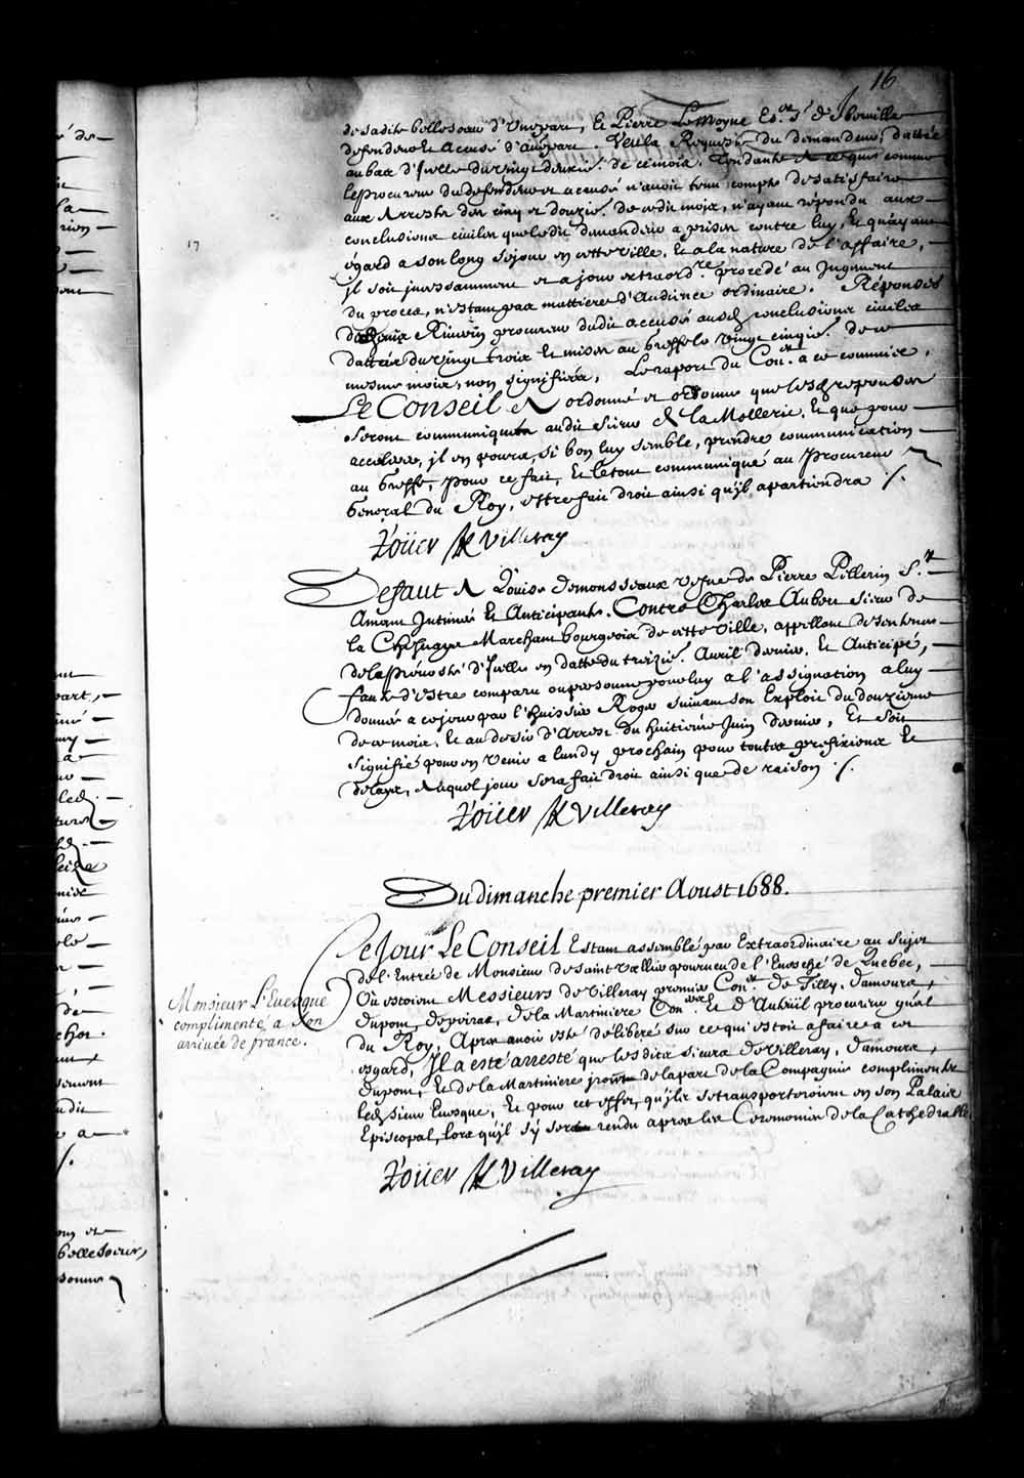 16
de sadite bellesoeur d'Unepart, Et Pierre Lemoyne Escr. Sr. d'Iberville
defendeur Et accusé d'autrepart. Veu la Requeste du demandeur, dattée
au bas d'Icelle du vingt deuxie. de ce mois. Tendante a ce que comme
le procureur du defendeur et accusé n'auoit tenu compte de satisfaire
aux Arrests des cinq et douzie. de ce dit mois, n'ayant répondu aux
conclusions ciuiles que ledit demandeur a prises contre luy, Et qu'ayant
égard a son long sejour en cette ville, Et a la nature de l'affaire,
Il soit incessamment et a jour extraordre. procedé au Jugement
du procez, n'estant pas mattiere d'Audience ordinaire. Réponses
de Riuerin procureur dudit accusé ausd conclusions ciuiles
dattées du vingt trois Et mises au Greffe le vingt cinqie. de ce
mesme mois, non signifiées, Le raport du Coner. a ce commis,
Le Conseil a ordonné et ordonne que lesd responses
seront communiquées audit sieur de la Mollerie, Et que pour
accelerer, il en poura, si bon luy semble, prendre communication
au Greffe, pour ce fait, Et le tout communiqué au Procureur
General du Roy, estre fait droit ainsi qu'il apartiendra ./.
Roüer De Villeray
Defaut A Louise demousseaux vefue de Pierre Pellerin Sr.
Amant Intimée Et Anticipante. Contre Charles Aubert sieur de
la Chesnaye Marchant bourgeois de cette Ville, appellant de sentence
de la preuosté d'Icelle en datte du treizie. Auril dernier, Et Anticipé,
faute d'estre comparu ou personne pour luy a l'assignation a luy
donnée a ce jour par l'huissier Roger suiuant son Exploit du douzieme
de ce mois, Et au desir d'Arrest du huitieme Juin dernier, Et soit
signifié pour en venir a lundy prochain pour toutes prefixions Et
delays, auquel jour sera fait droit ainsi que de raison ./.
Roüer De Villeray
Du dimanche premier Aoust 1688.
Ce Jour Le Conseil Estant assemblé par Extraordinaire au sujet
de l'Entrée de Monsieur de saint vallier pourueu de l'Euesché de Quebec,
Monsieur L'Euesque
complimenté a son
arriuée de france.
Où estoient Messieurs de Villeray premier Coner. de Tilly, damours,
dupont, depeiras, de la Martiniere Coners. Et d'Auteüil procureur gnãl
du Roy, Apres auoir esté délibéré sur ce qui estoit a faire a cet
esgard, Il a esté arresté que lesdits sieurs de Villeray, damours,
dupont, Et de la Martiniere iront de la part de la Compagnie complimenter
ledt sieur Euesque, Et pour cet effet, qu'ils se transporteroient en son Palais
Episcopal, lors qu'il s'y sera rendu apres les Ceremonies de la Cathedralle
Roüer De Villeray